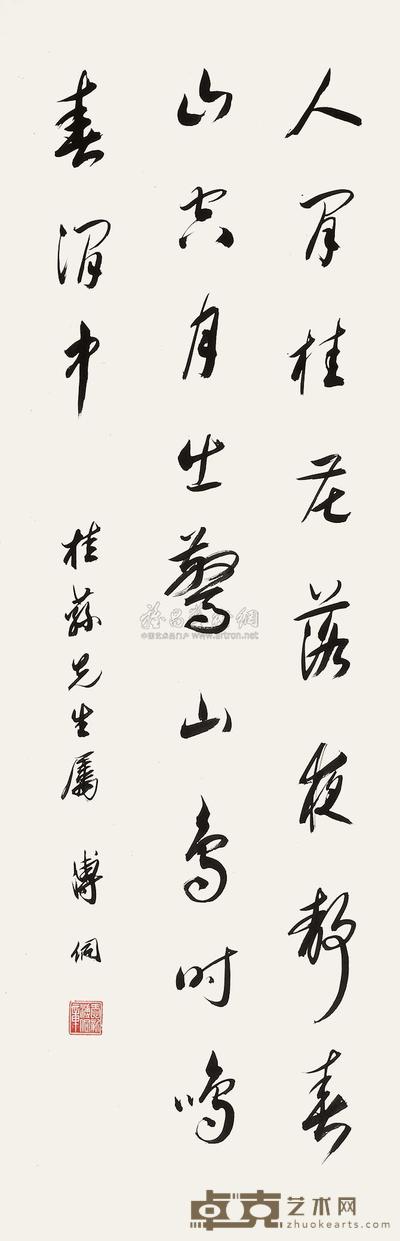 人閒桂花落夜靜春
山空月出驚山鳥时鳴
春澗中
桂蓀先生屬 溥侗
雅昌藝術網
中国艺术品门户 www.artron.net
卓克艺术网
zhuokearts.com